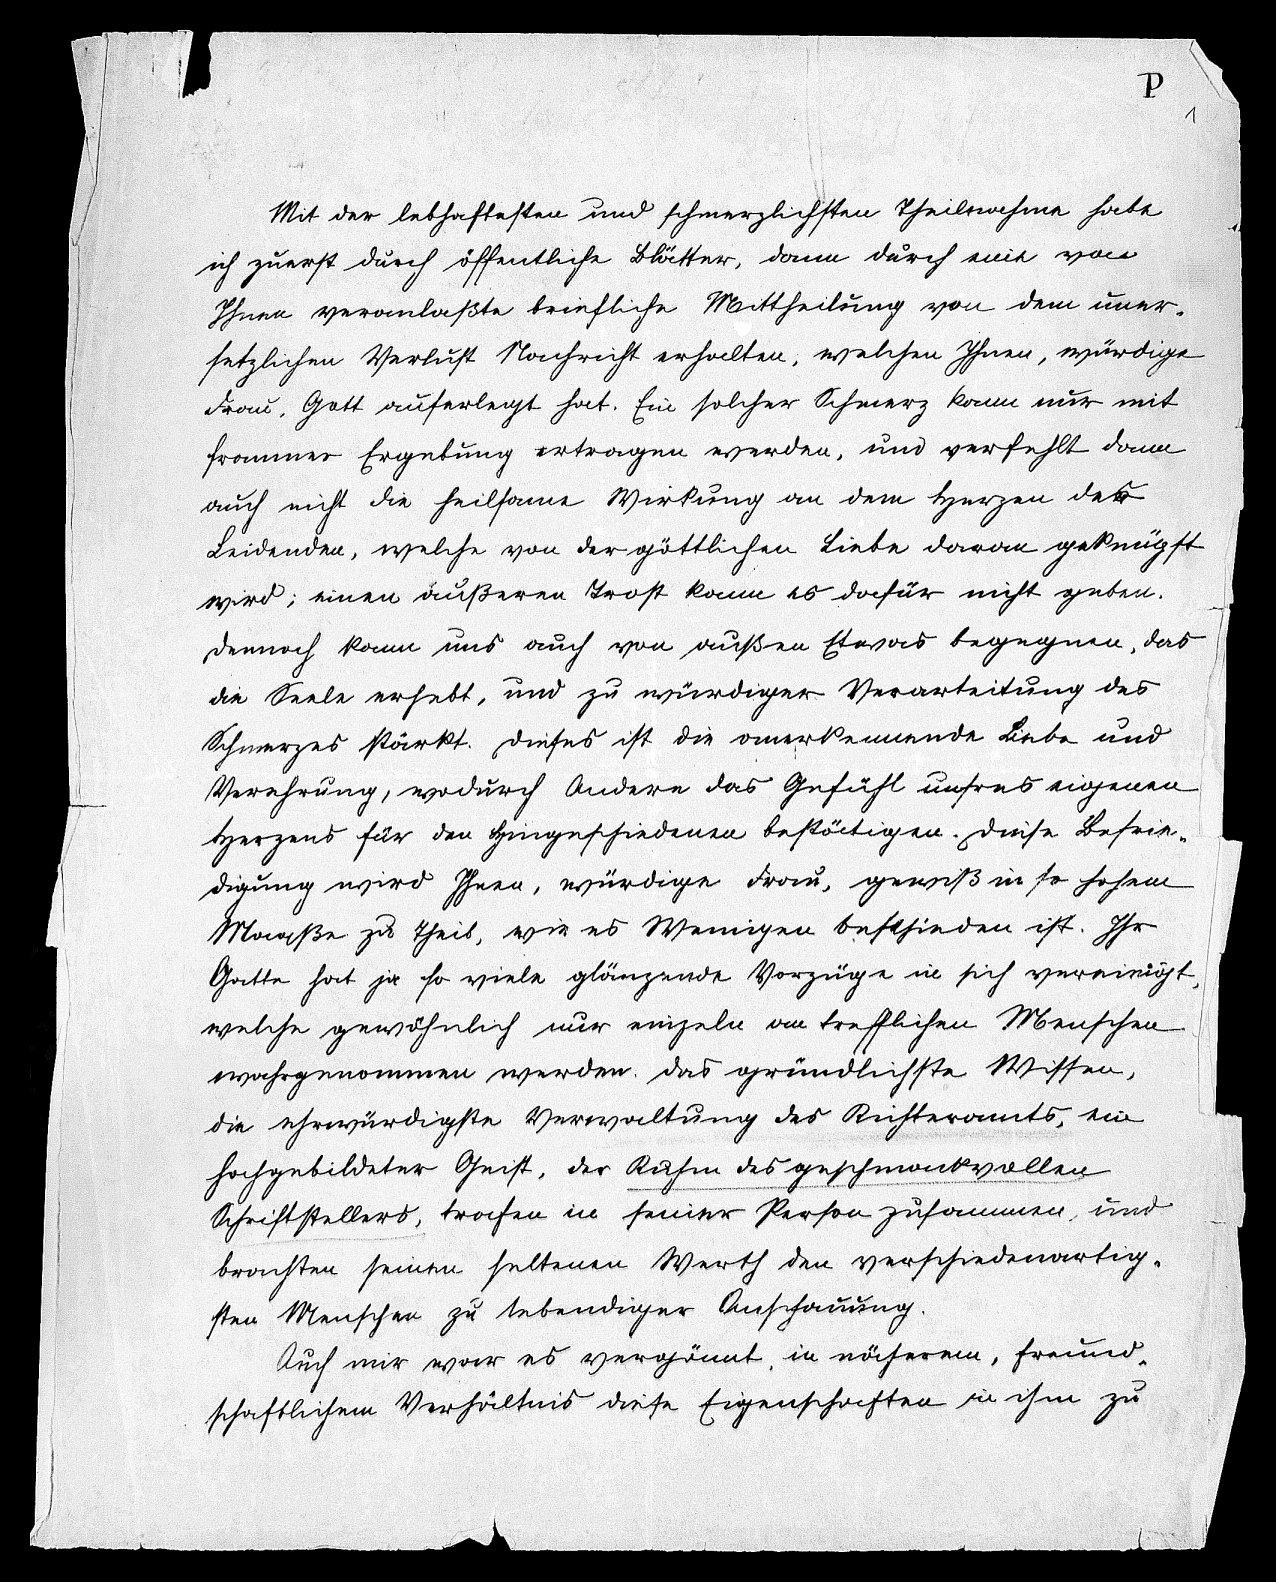 P
1
Mit der lebhaftesten und schmerzlichsten Theilnahme habe
ich zuerst durch öffentliche Blätter, dann durch eine von
Ihnen veranlaßte briefliche Mittheilung von dem uner-
setzlichen Verlust Nachricht erhalten, welchen Ihnen, würdige
Frau, Gott auferlegt hat. Ein solcher Schmerz kann nur mit
frommer Ergebung ertragen werden, und verfehlt dann
auch nicht die heilsame Wirkung an dem Herzen des
Leidenden, welche von der göttlichen Liebe daran geknüpft
wird; einen äußeren Trost kann es dafür nicht geben.
Dennoch kann uns auch von außen Etwas begegnen, das
die Seele erhebt, und zu würdiger Verarbeitung des
Schmerzes stärkt. Dieses ist die anerkennende Liebe und
Verehrung, wodurch Andere das Gefühl unsres eigenen
Herzens für den Hingeschiedenen bestätigen. Diese Befrie-
digung wird Ihnen, würdige Frau, gewiß in so hohem
Maaße zu Theil, wie es Wenigen beschieden ist. Ihr
Gatte hat ja so viele glänzende Vorzüge in sich vereinigt,
welche gewöhnlich nur einzeln an trefflichen Menschen
wahrgenommen werden. Das gründlichste Wissen,
die ehrwürdigste Verwaltung des Richteramts, ein
hochgebildeter Geist, der Ruhm des geschmackvollen
Schriftstellers, trafen in seiner Person zusammen, und
brachten seinen seltenen Werth den verschiedenartig-
sten Menschen zu lebendiger Anschauung.
Auch mir war es vergönnt, in näherem, freund-
schaftlichem Verhältnis diese Eigenschaften in ihm zu